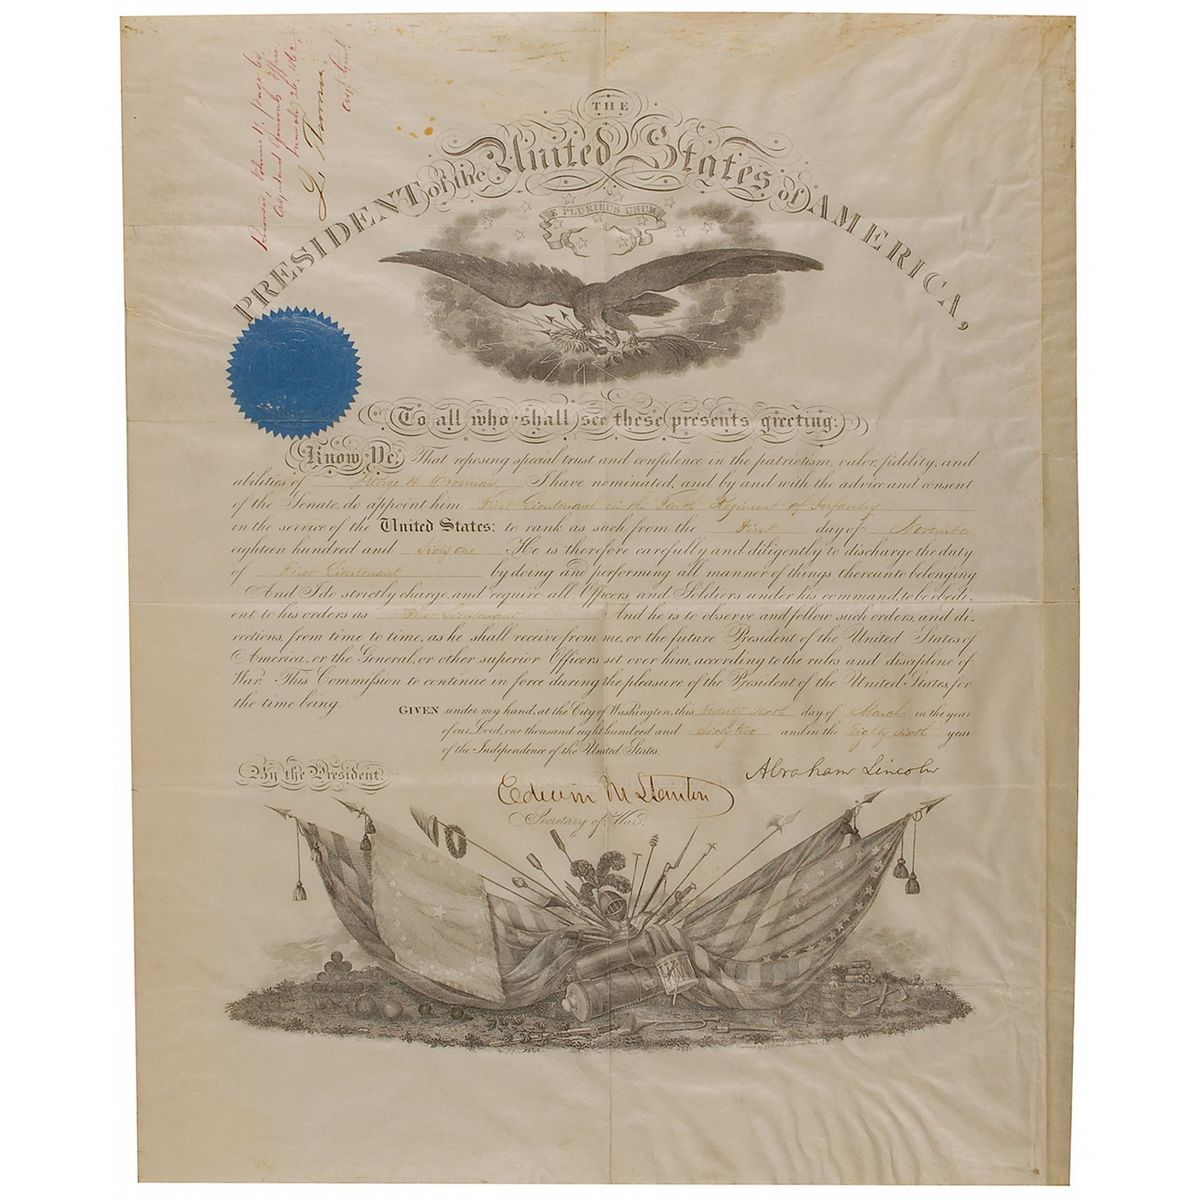 THE
PRESIDENT of the United States of AMERICA,
E PLURIBUS UNUM
To all who shall see these presents greeting:
Know Ye, That reposing special trust and confidence in the patriotism, valor, fidelity, and
abilities of George H I have nominated, and by and with the advice and consent
of the Senate, do appoint him First Lieutenant in the Regiment of Infantry
in the service of the United States: to rank as such from the First day of November
eighteen hundred and Sixty one He is therefore carefully and diligently to discharge the duty
of First Lieutenant by doing and performing all manner of things thereunto belonging.
And I do strictly charge, and require all Officers and Soldiers under his command, to be obedi-
ent to his orders as First Lieutenant And he is to observe and follow such orders, and di-
rections, from time to time, as he shall receive from me, or the future President of the United States of
America, or the General, or other superior Officers set over him, according to the rules and discipline of
War. This Commission to continue in force during the pleasure of the President of the United States, for
the time being.
GIVEN under my hand, at the City of Washington, this Twenty Sixth day of March in the year
of our Lord, one thousand eight hundred and sixty two and in the Eighty sixth year
of the Independence of the United States.
By the President
Abraham Lincoln
Edwin M Stanton
Secretary of War.
Adjutant General's Office
March 26, 1862
L. Thomas
Adjt. Genl.